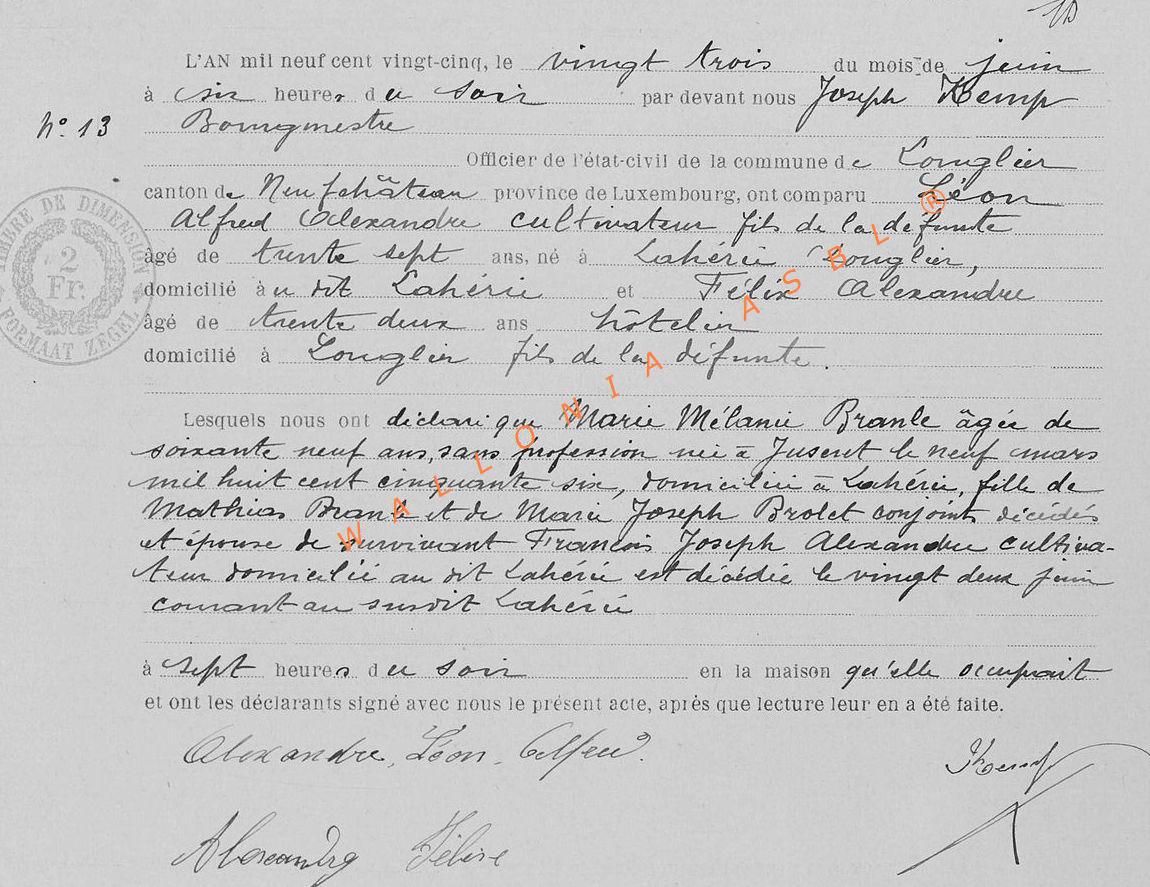 L'AN mil neuf cent vingt-cinq, le vingt trois du mois de juin
à six heures du soir par devant nous Joseph Kemp
N° 13 Bourgmestre
Officier de l'état-civil de la commune de Longlier
canton de Neufchâteau province de Luxembourg, ont comparu Léon
Alfred Alexandre cultivateur fils de la défunte
âgé de trente sept ans, né à Lahérie Longlier,
domicilié au dit Lahérie et Félix Alexandre
âgé de trente deux ans hôtelier
domicilié à Longlier fils de la défunte.
Lesquels nous ont déclaré que Marie Mélanie Branle âgée de
soixante neuf ans, sans profession née à Juseret le neuf mars
mil huit cent cinquante six, domiciliée à Lahérie, fille de
Mathias Branle et de Marie Joseph Brolet conjoints décédés
et épouse de survivant François Joseph Alexandre cultiva-
teur domicilié au dit Lahérie est décédée le vingt deux juin
courant au susdit Lahérie
à sept heures du soir en la maison qu'elle occupait
et ont les déclarants signé avec nous le présent acte, après que lecture leur en a été faite.
Alexandre, Léon, Alfred.
Kemp
Alexandre Félix
TIMBRE DE DIMENSION
2
Fr.
FORMAAT ZEGEL
WALLONIA ASBL ®